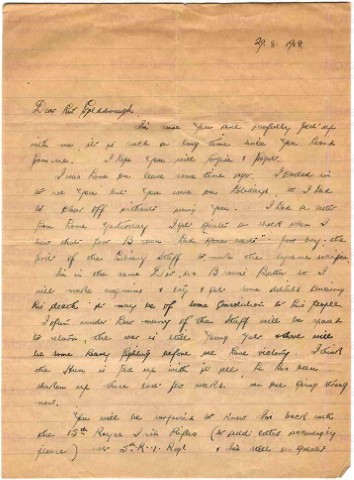 29.8.1918
Dear Mr Goldsbrough,
I'm sure you are fed up
with me, it is such a long time since you heard
from me. I hope you will forgive & forget.
I was home on leave some time ago. I called in
to see you but you were on holidays, so I had
to clear off without seeing you. I had a letter
from home yesterday I got quite a shock when I
saw that poor B was Poor boy, the
first of the Library Staff to make the supreme sacrifice
I'm in the same Div. as B so I
will make enquiries & try & get some details concerning
his death it may be of some consolation to his people.
I often wonder how many of the Staff will be spared
to return, the war is still young yet there will
be some heavy fighting before we have victory. I think
the Hun is fed up with it all, he has been
up these last few weeks. We are going strong
now.
You will be surprised to know I'm back with
the 15th Royal Irish Rifles (to add
please) not 5th R.I. Regt